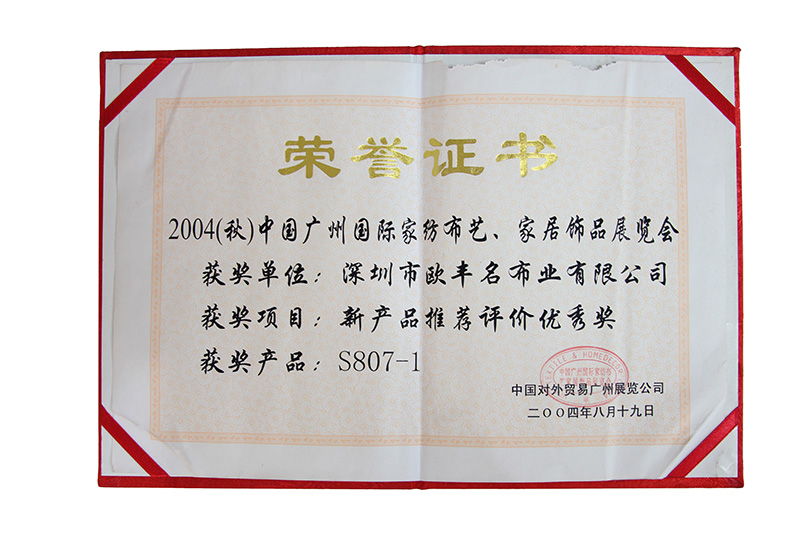 荣誉证书
2004(秋)中国广州国际家纺布艺、家居饰品展览会
获奖单位：深圳市欧丰名布业有限公司
获奖项目：新产品推荐评价优秀奖
获奖产品：S807-1
TILE & HOMEDECOR
中国广州国际家纺布
中国对外贸易广州展览公司
二〇〇四年八月十九日